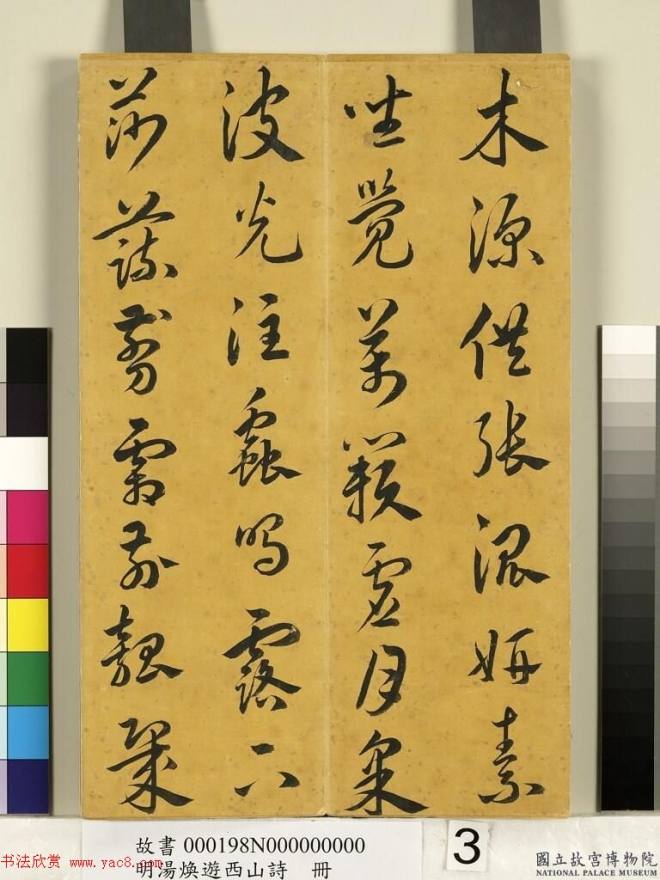 木源供張混妍素
坐覺萬籟虛月
波光注蟲鳴露下
莎蔬剪霜前
故書 000198N000000000
明湯煥遊西山詩 冊
3
國立故宮博物院
NATIONAL PALACE MUSEUM
书法欣赏 www.yac8.com